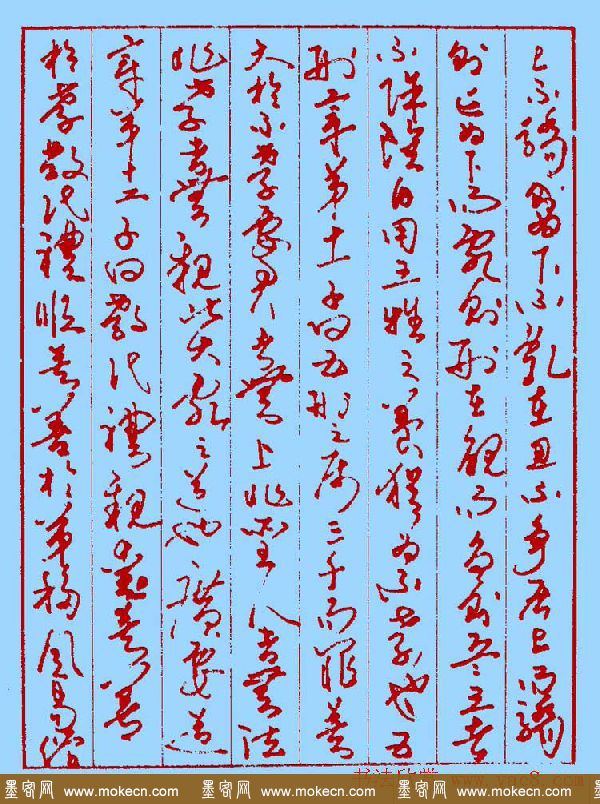 上不驕為下不亂在醜不爭居上而驕
則亡為下而亂則刑在醜而爭則兵三者
不除雖日用三牲之養猶為不孝也五
刑章第十一子曰五刑之屬三千而罪莫
大於不孝要君者無上非聖人者無法
非孝者無親此大亂之道也廣要道
章第十二子曰教民禮親愛莫善
於孝教民禮順莫善於弟移風易俗
书法欣赏 www.yac8.com
墨客网 www.mokecn.com 墨客网 www.mokecn.com 墨客网 www.mokecn.com